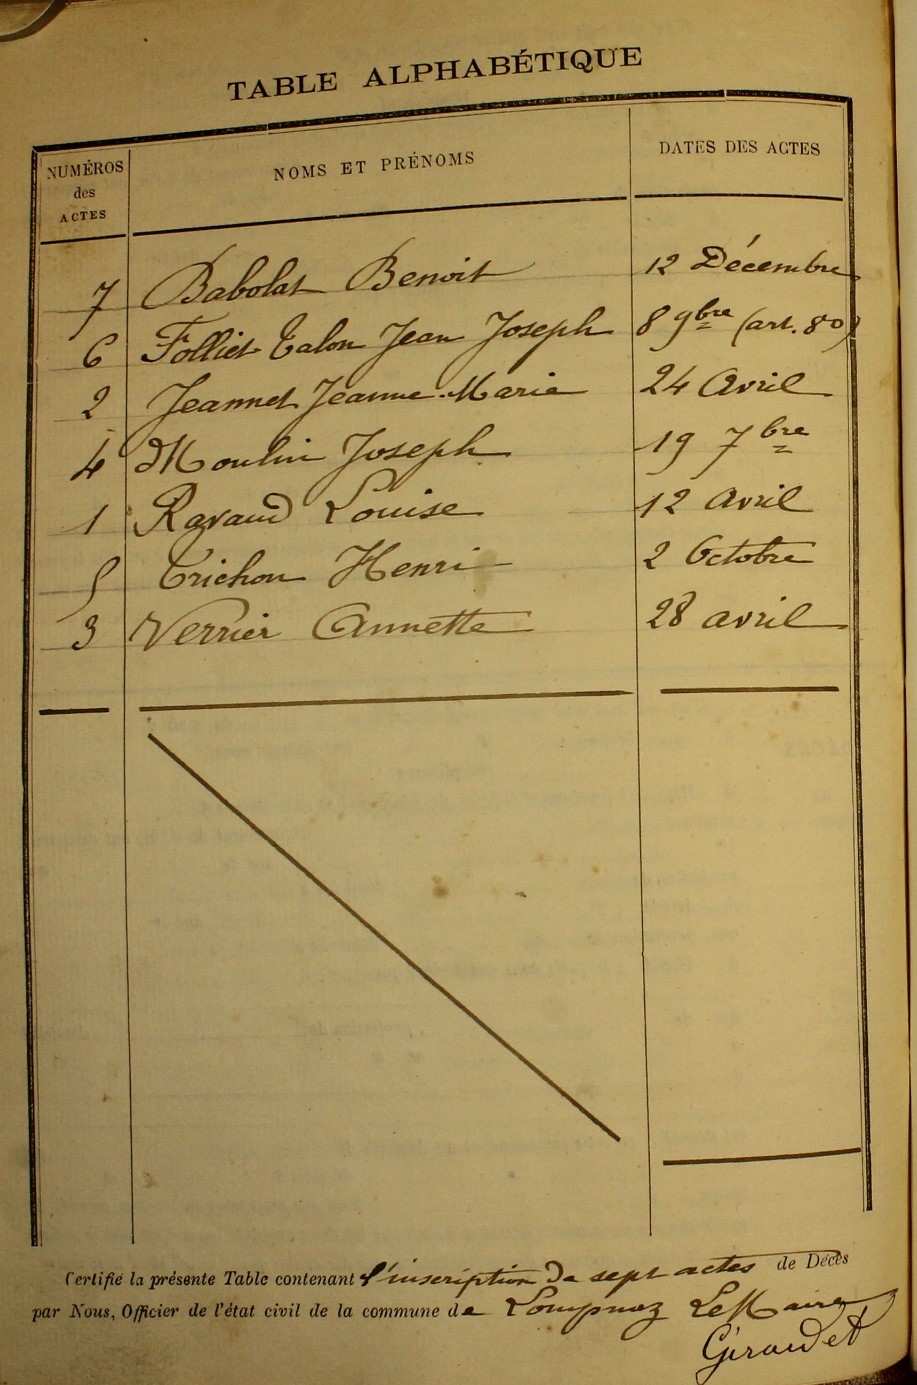 TABLE ALPHABÉTIQUE
NUMÉROS des ACTES NOMS ET PRÉNOMS DATES DES ACTES
7 Babolat Benoit 12 Décembre
6 Folliet Talon Jean Joseph 8 9bre (art. 80)
2 Jeannet Jeanne-Marie 24 Avril
4 Moulin Joseph 19 7bre
1 Ravaud Louise 12 Avril
5 Trichon Henri 2 Octobre
3 Verrier Annette 28 avril
Certifié la présente Table contenant l'inscription de sept actes de Décès
par Nous, Officier de l'état civil de la commune de Lompnaz Le Maire
Giraudet